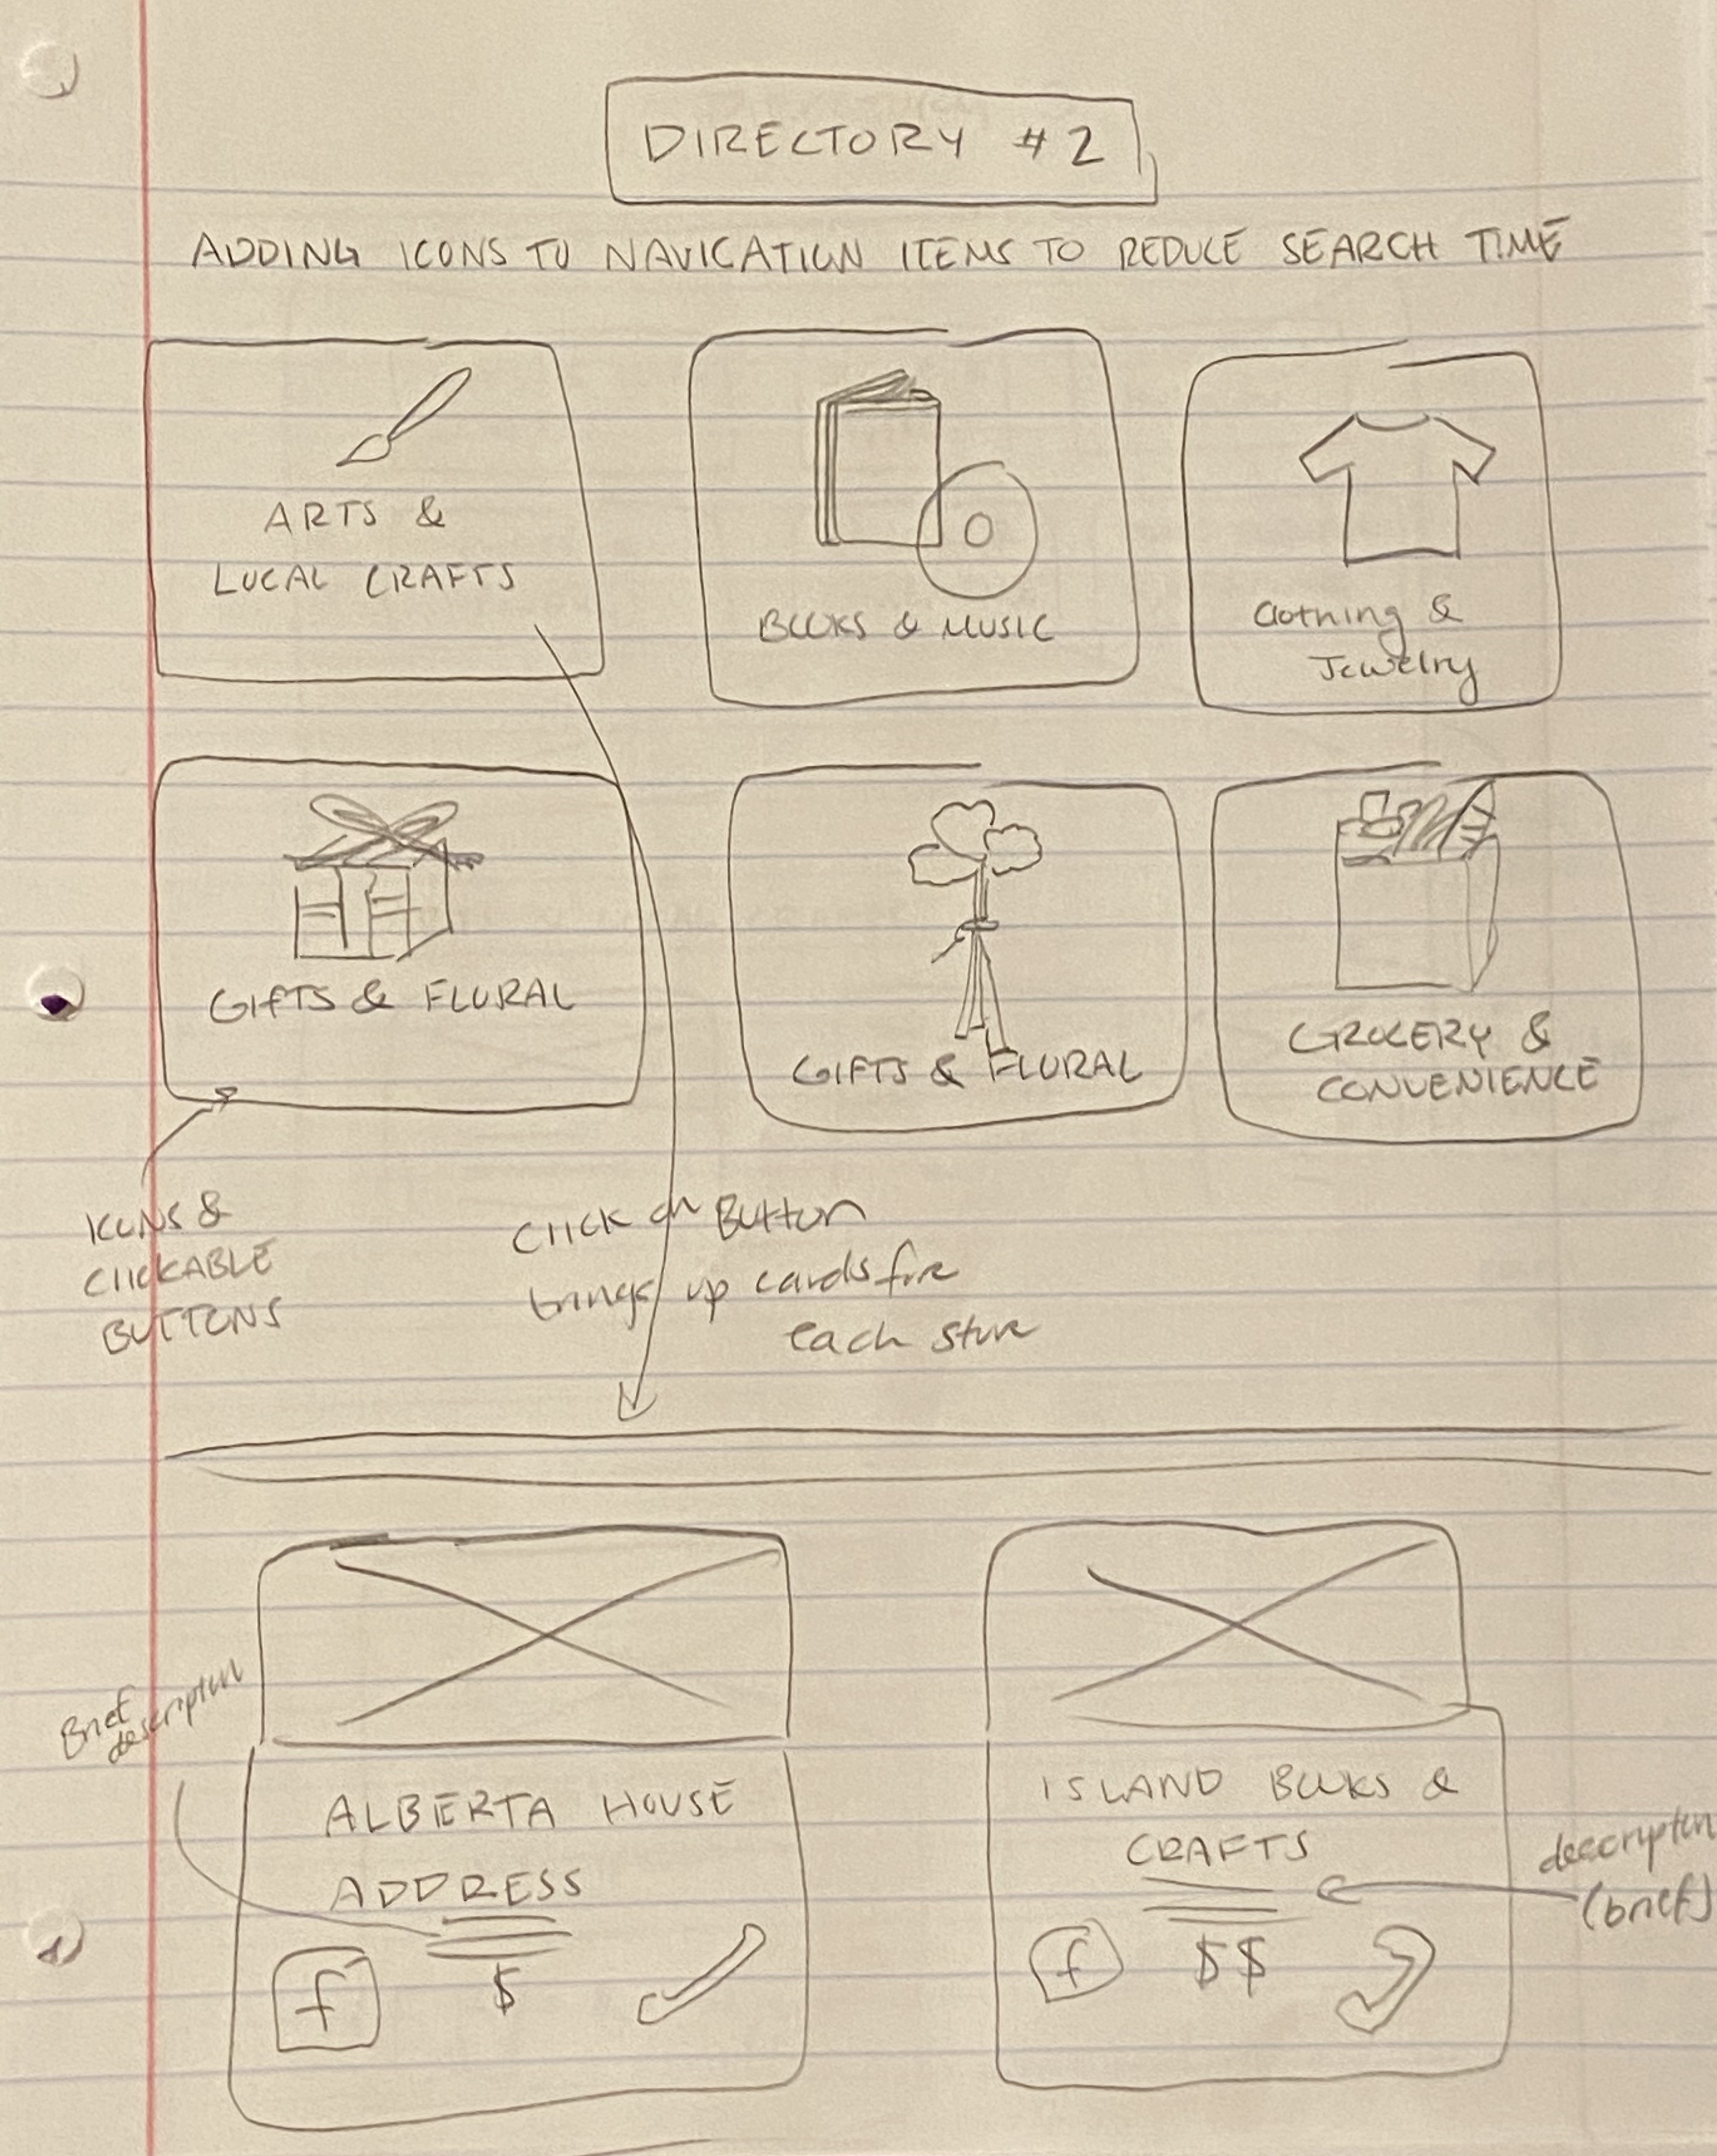 DIRECTORY #2
ADDING ICONS TO NAVIGATION ITEMS TO REDUCE SEARCH TIME
ARTS &
LOCAL CRAFTS
BOOKS & MUSIC
Clothing &
Jewelry
GIFTS & FLORAL
GIFTS & FLORAL
GROCERY &
CONVENIENCE
ICONS &
CLICKABLE
BUTTONS
Click on Button
brings up cards for
each store
Brief
description
ALBERTA HOUSE
ADDRESS
f
$
ISLAND BOOKS &
CRAFTS
f
$$
description
(brief)